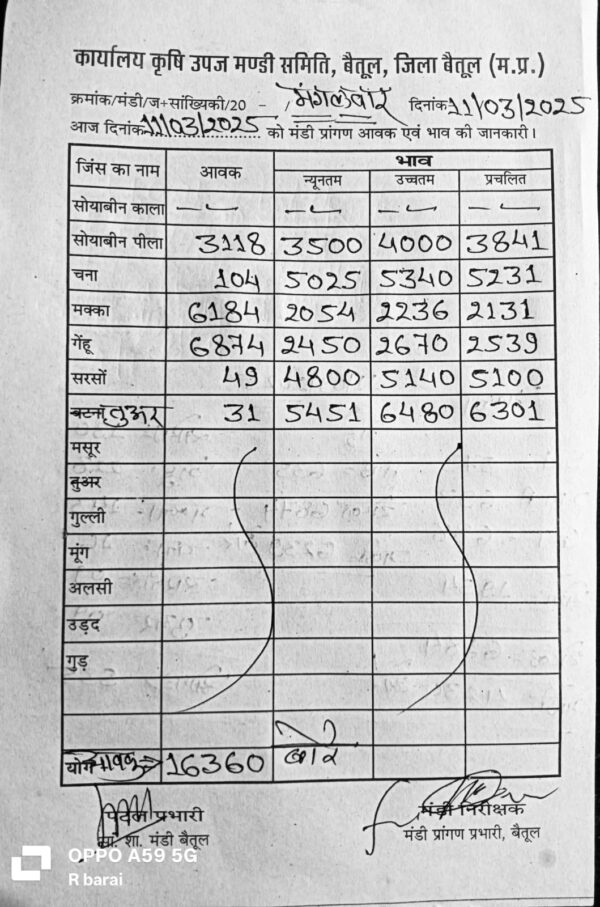 कार्यालय कृषि उपज मण्डी समिति, बैतूल, जिला बैतूल (म.प्र.)
क्रमांक/मंडी/ज+सांख्यिकी/20 - , मंगलवार दिनांक 11/03/2025
आज दिनांक 11/03/2025 को मंडी प्रांगण आवक एवं भाव की जानकारी।
जिंस का नाम आवक भाव
न्यूनतम उच्चतम प्रचलित
सोयाबीन काला
सोयाबीन पीला 3118 3500 4000 3841
चना 104 5025 5340 5231
मक्का 6184 2054 2236 2131
गेंहू 6874 2450 2670 2539
सरसों 49 4800 5140 5100
बटना तुअर 31 5451 6480 6301
मसूर
तुअर
गुल्ली
मूंग
अलसी
उड़द
गुड़
योग आवक 16360 बोरे
प्रभारी मंडी निरीक्षक
सां. शा. मंडी बैतूल मंडी प्रांगण प्रभारी, बैतूल
OPPO A59 5G
R barai